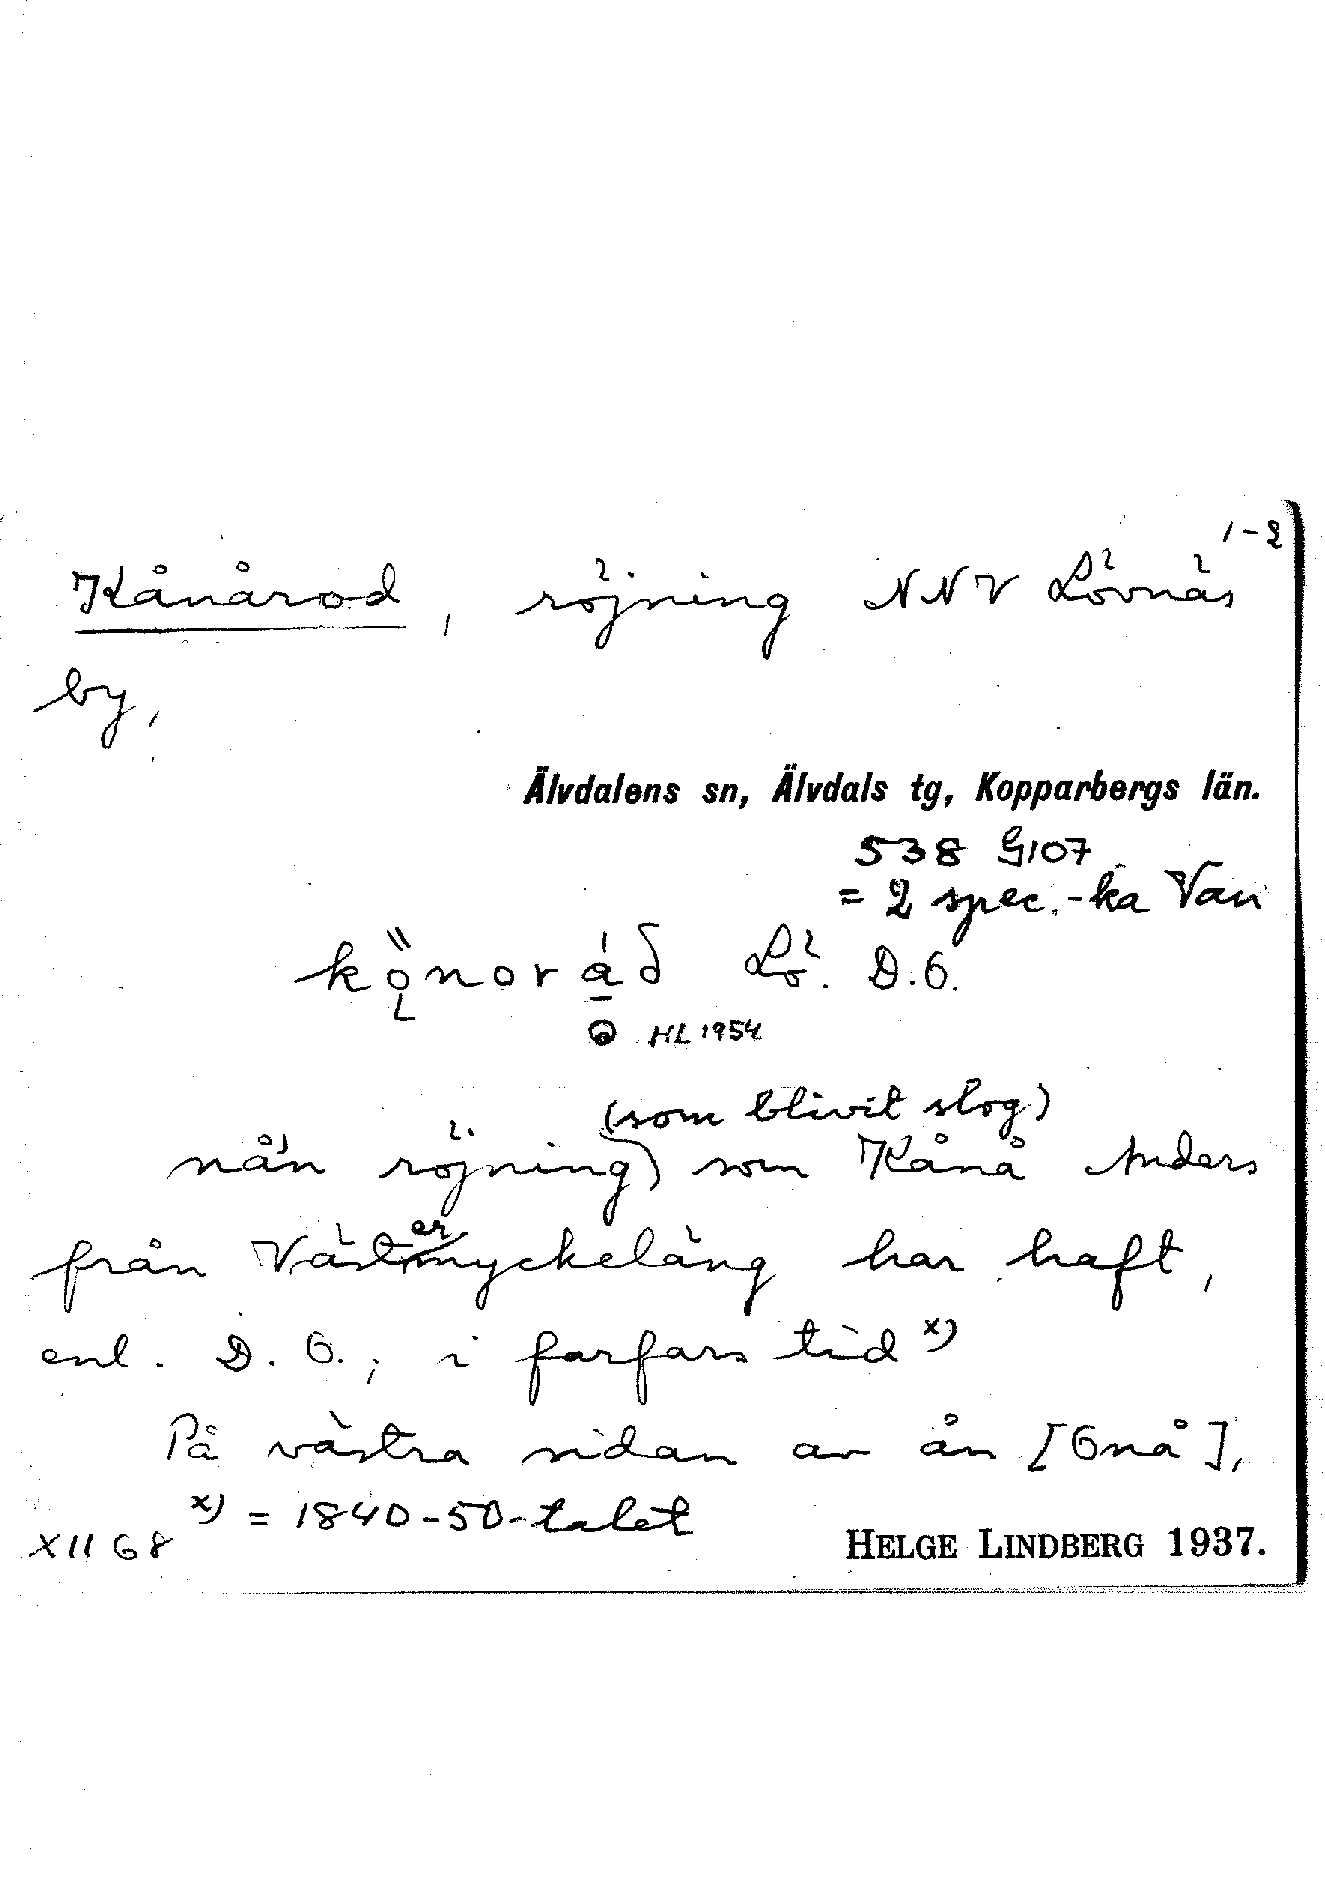 1-2
Kånårod, röjning NNV Lövnäs
by,
Älvdalens sn, Älvdals tg, Kopparbergs län.
538 G107
= 2 spec.-ka Van
Lö. D.O.
HL 1954
(som blivit slog)
nå'n röjning) som Kånå Anders
från Västermyckeläng har haft,
enl. D.O., i farfars tid x)
På västra sidan av ån [Gnå],
x) = 1840-50-talet
XII 68
HELGE LINDBERG 1937.